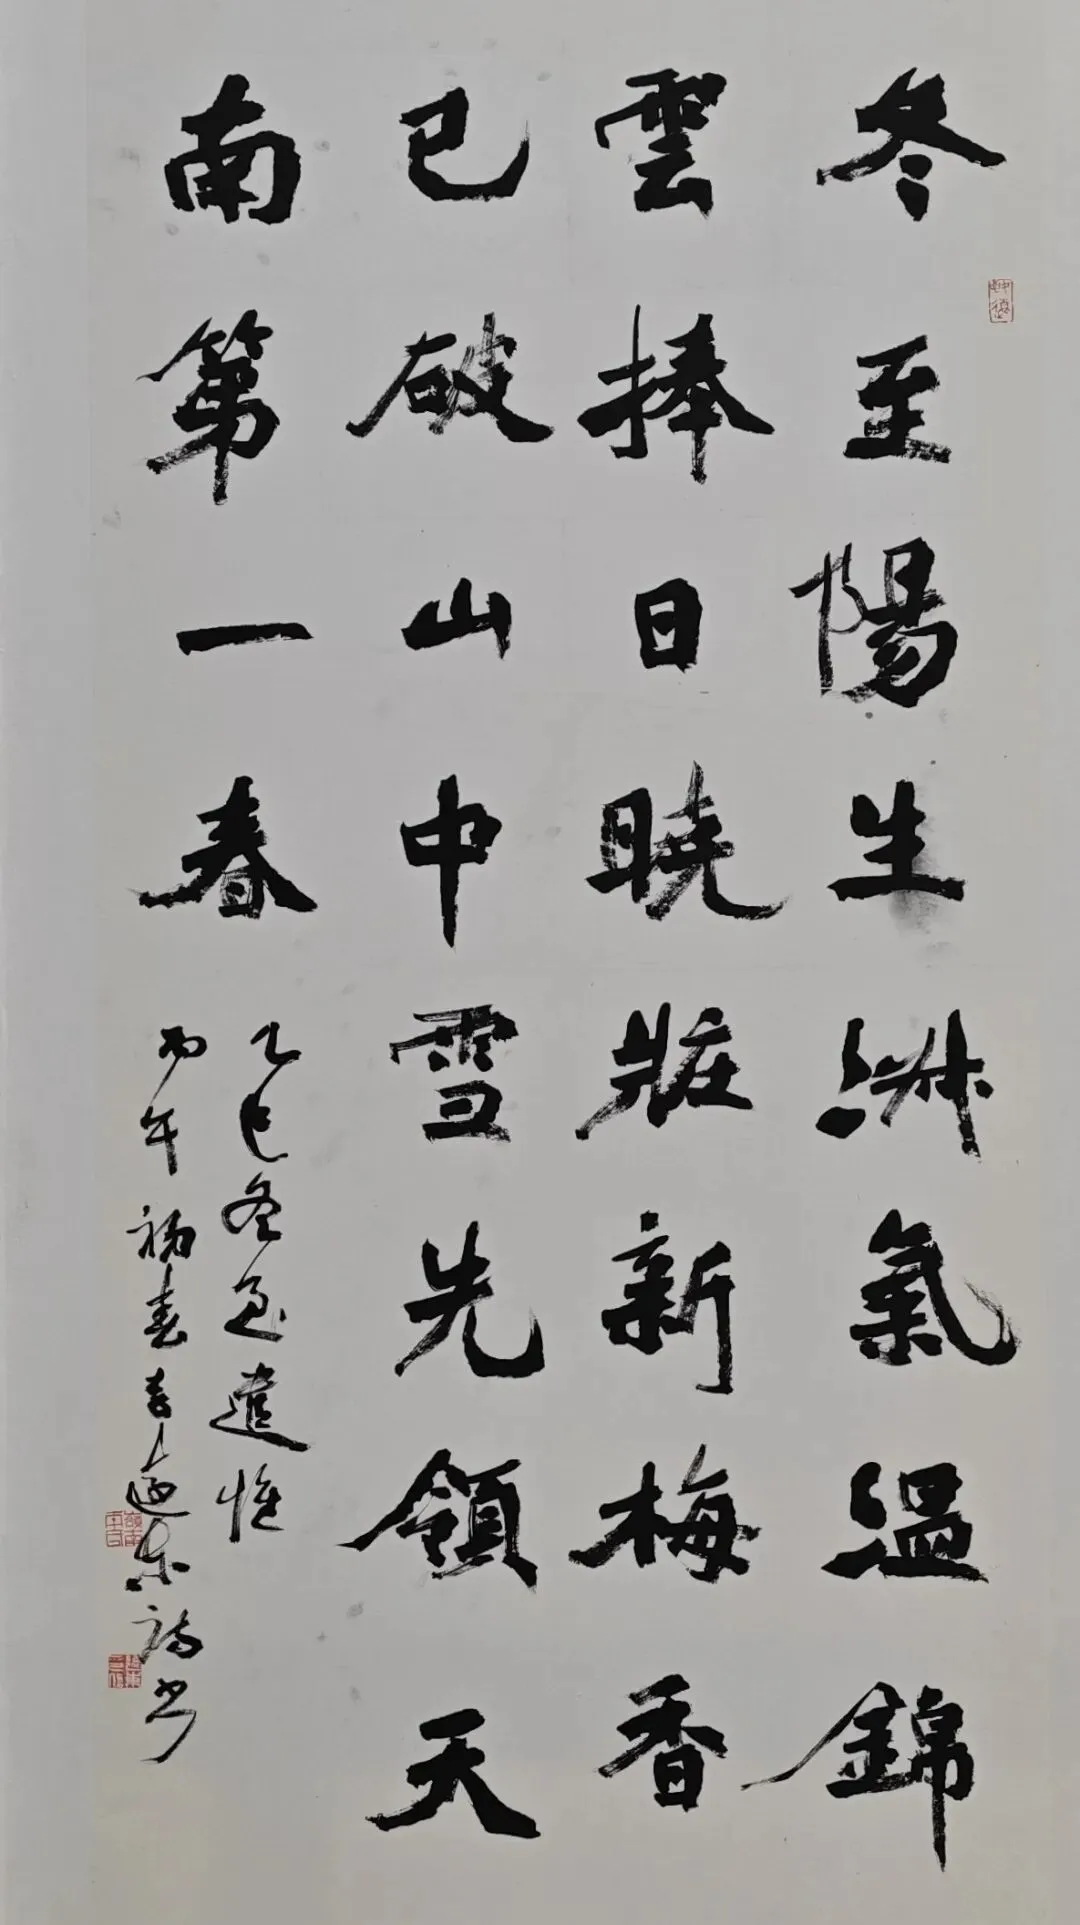 冬至陽生淑氣温錦
雲捧日曉粧新梅香
已破山中雪先領天
南第一春
乙巳冬至遣怀
丙午初春
詩书